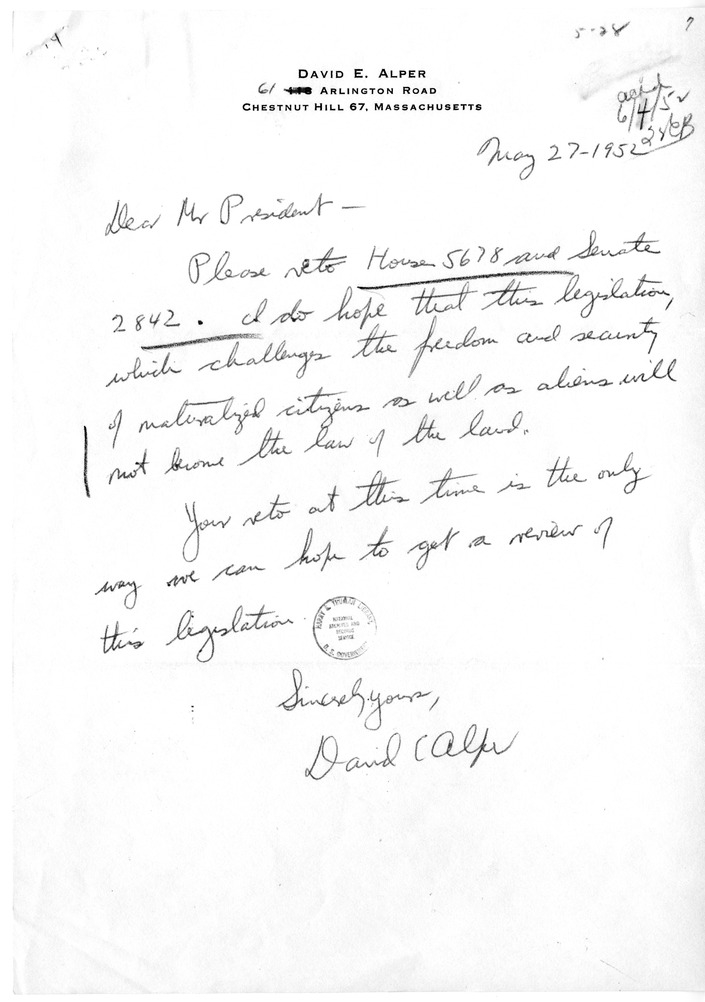 5-28
7
DAVID E. ALPER
61 ARLINGTON ROAD
CHESTNUT HILL 67, MASSACHUSETTS
6/4/52
May 27-1952
Dear Mr President —
Please veto House 5678 and Senate
2842. I do hope that this legislation,
which challenges the freedom and security
of naturalized citizens as well as aliens will
not become the law of the land.
Your veto at this time is the only
way we can hope to get a review of
this legislation
HARRY S. TRUMAN LIBRARY
NATIONAL
ARCHIVES AND
RECORDS
SERVICE
U. S. GOVERNMENT
Sincerely yours,
David E Alper